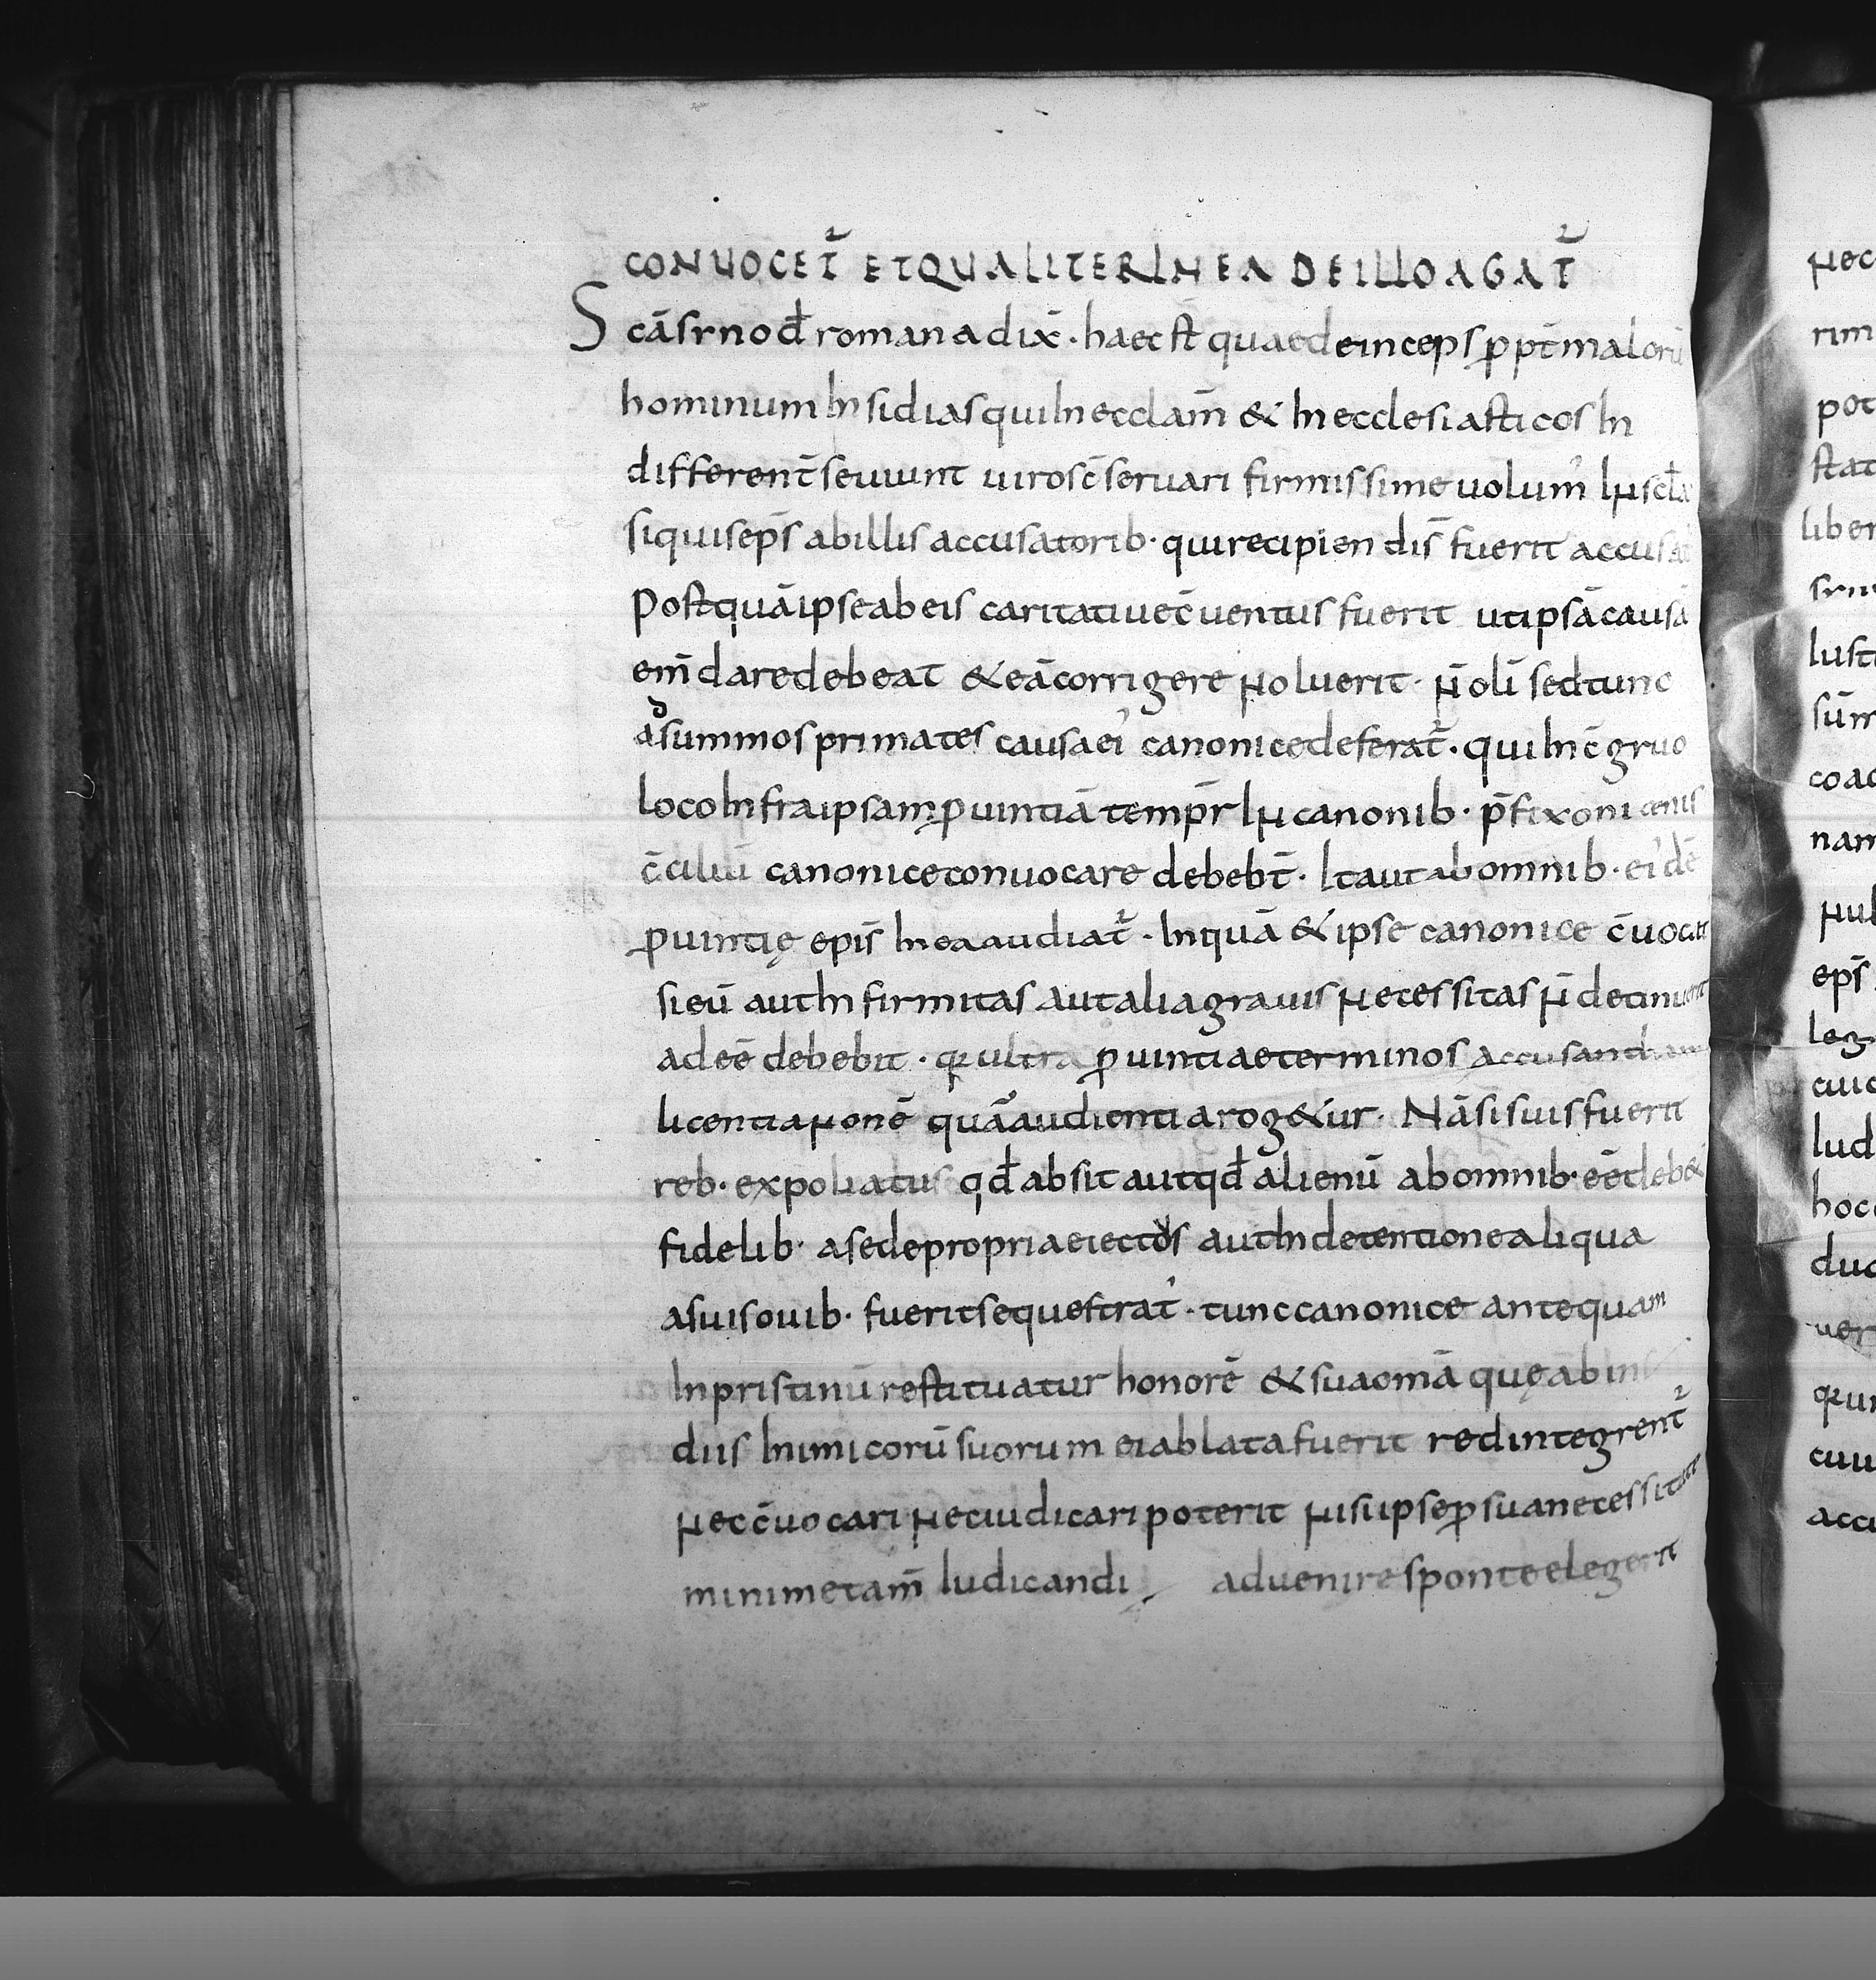 CONUOCET̄ ET QUALITER IN EA DE ILLO AGAT̄
Scā sinod̄ romana dix̄. haec st̄ quae deinceps ꝓpt̄ malorū
hominum insidias qui in ecclam̄ & in ecclesiasticos in
different̄ seuiunt uiros c̄seruari firmissime uolum̓ In
si quis ep̄s ab illis accusatorib· qui recipiendis̄ fuerit
Postquā ipse ab eis caritatiue c̄uentus fuerit ut ipsā causā
em̄dare debeat & eā corrigere noluerit· n̄ oli sed tunc
ad summos primates causa ei̓ canonice deferat̄· qui in c̄gruo
loco infra ipsam ꝓuintiā temp̄r In canonib· p̄fixo nicenis
c̄ciliū canonice conuocare debebt̄· Ita ut ab omnib· ei̓dē
ꝓuintię epis̄ in ea audiat̄· In quā & ipse canonice c̄uocat
si eū aut infirmitas aut alia grauis necessitas n̄ detinuerit
adeē debebit· qꝛ ultra ꝓuintiae terminos accusandi
licentia non ē quā audientia rog&ur· Nā si suis fuerit
reb· expoliatus qd̄ absit aut qd̄ alienū ab omnib· eē deb&
fidelib· a sede propria eiectus aut in detentione aliqua
a suis ouib· fuerit sequestrat̓· tunc canonice antequam
In pristinū restituatur honorē & sua omā quę ab in
diis inimicorū suorum ei ablata fuerit redintegrent̄
nec c̄uocari nec iudicari poterit nisi ipse ꝓ sua necessitate
minime tam̄ iudicandi aduenire sponte elegerit